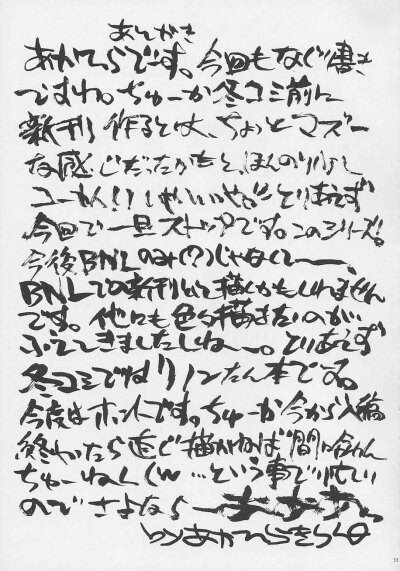 あとがき
あかてらでーす。今回もなぐり書き
ですわ。ちゅーか冬コミ前に
新刊作るとは、ちょっとマズー
な感じだったかもと、ほんのり
ユーか!! しゃいいや とりあえず
今回で一旦ストップです。このシリーズ!
今後BNLのみ(?)じゃなくて〜、
BNLでの新刊して描くかもしれません
です。他にも色々描きたいのが、
ふえてきましたしね〜。とりあえず
冬コミではリンたん本です。
今度はホントです。ちゅーか今から入稿
終わったら直ぐ描かねば間に合わん
ちゅーねん(w …という事で忙しい
のでさよなら〜
by あかてらきらら
33